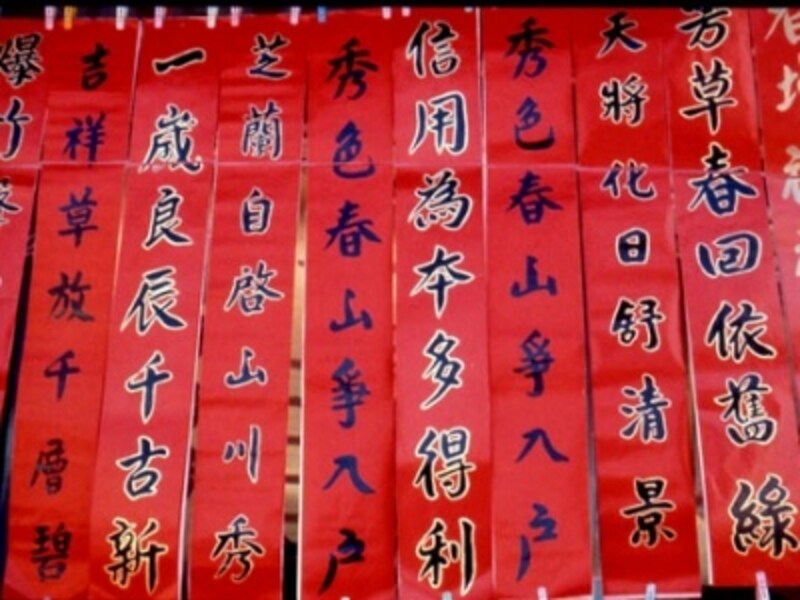 芳草春回依舊綠
天將化日舒清景
秀色春山爭入戶
信用為本多得利
秀色春山爭入戶
芝蘭自啓山川秀
一歲良辰千古新
吉祥草放千層碧
爆竹